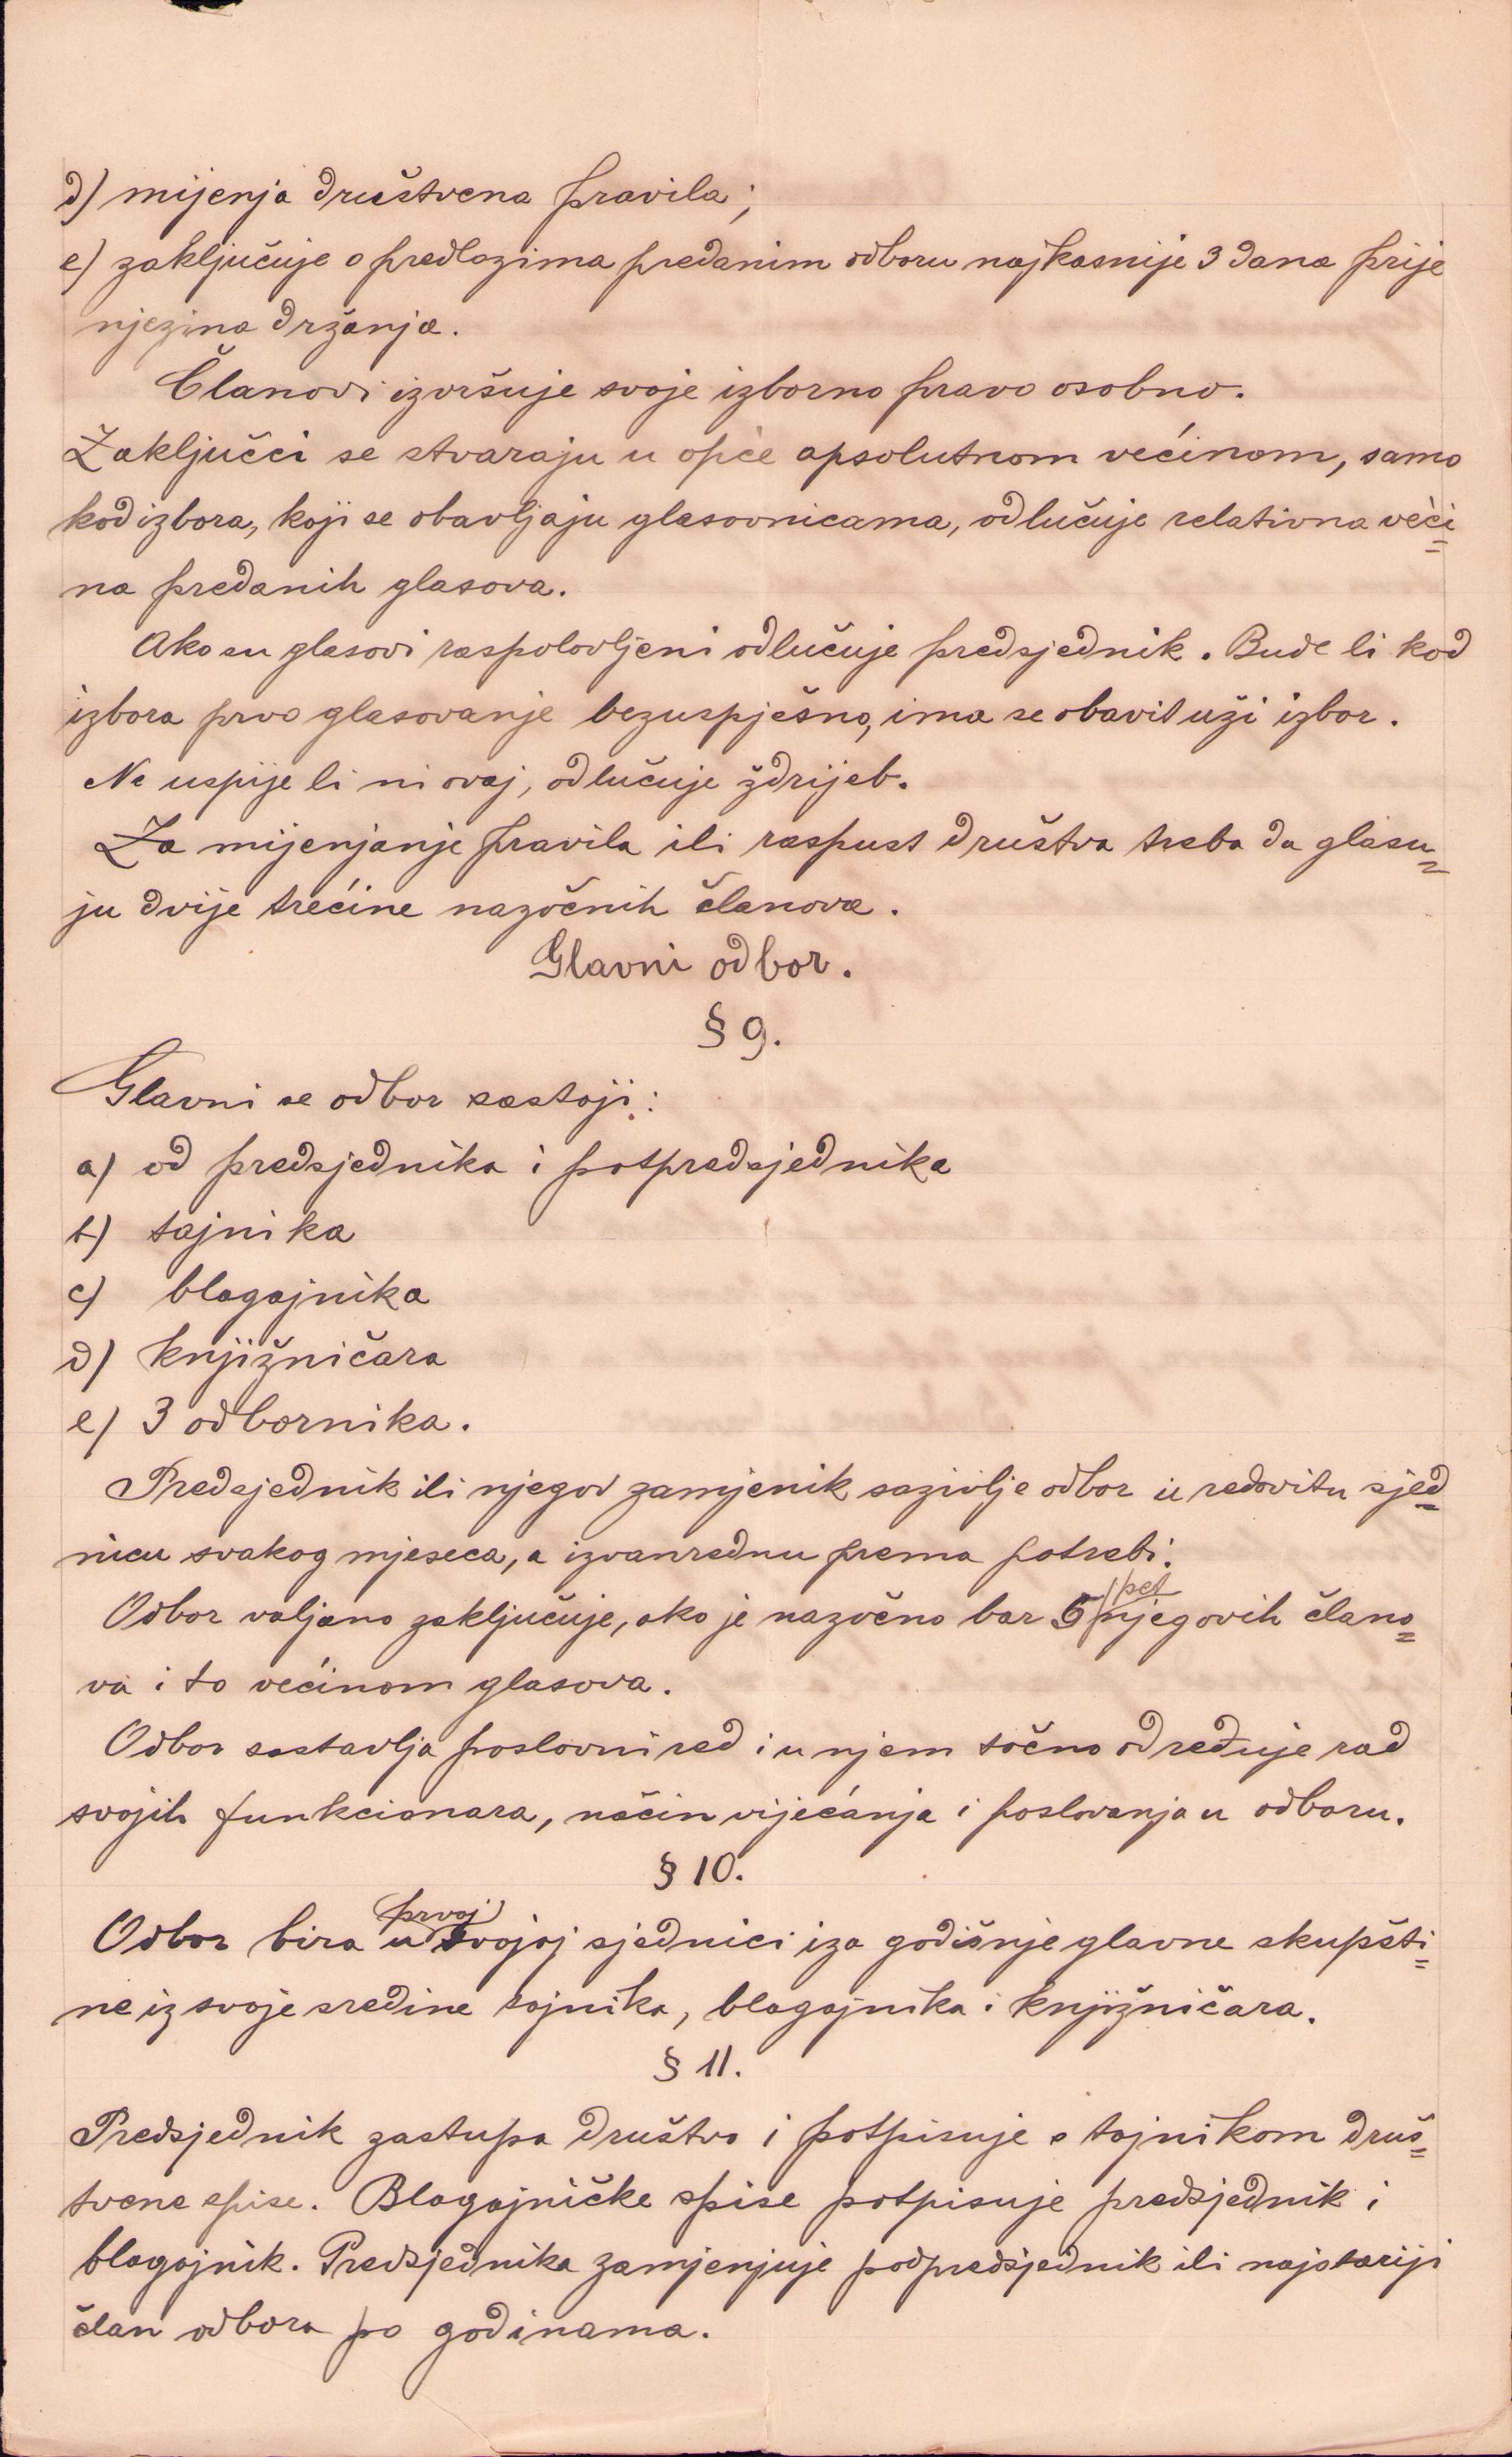 d) mijenja društvena pravila;
e) zaključuje o predlozima predanim odboru najkasnije 3 dana prije
njezina držanja.
Članovi izvršuje svoje izborno pravo osobno.
Zaključci se stvaraju u opće apsolutnom većinom, samo
kod izbora, koji se obavljaju glasovnicama, odlučuje relativna veći=
na predanih glasova.
Ako su glasovi raspolovljeni odlučuje predsjednik. Bude li kod
izbora prvo glasovanje bezuspješno, ima se obavit uži izbor.
Ne uspije li ni ovaj, odlučuje ždrijeb.
Za mijenjanje pravila ili raspust društva treba da glasu=
ju dvije trećine nazočnih članova.
Glavni odbor.
§ 9.
Glavni se odbor sastoji:
a) od predsjednika i potpredsjednika
b) tajnika
c) blagajnika
d) knjižničara
e) 3 odbornika.
Predsjednik ili njegov zamjenik sazivlje odbor u redovitu sjed=
nicu svakog mjeseca, a izvanrednu prema potrebi.
Odbor valjano zaključuje, ako je nazočno bar 5 /pet/ njegovih člano=
va i to većinom glasova.
Odbor sastavlja poslovni red i u njem točno određuje rad
svojih funkcionara, način vijećanja i poslovanja u odboru.
§ 10.
Odbor bira u prvoj svojoj sjednici iza godišnje glavne skupšti=
ne iz svoje sredine tajnika, blagajnika i knjižničara.
§ 11.
Predsjednik zastupa društvo i potpisuje s tajnikom druš=
tvene spise. Blagajničke spise potpisuje predsjednik i
blagajnik. Predsjednika zamjenjuje podpredsjednik ili najstariji
član odbora po godinama.